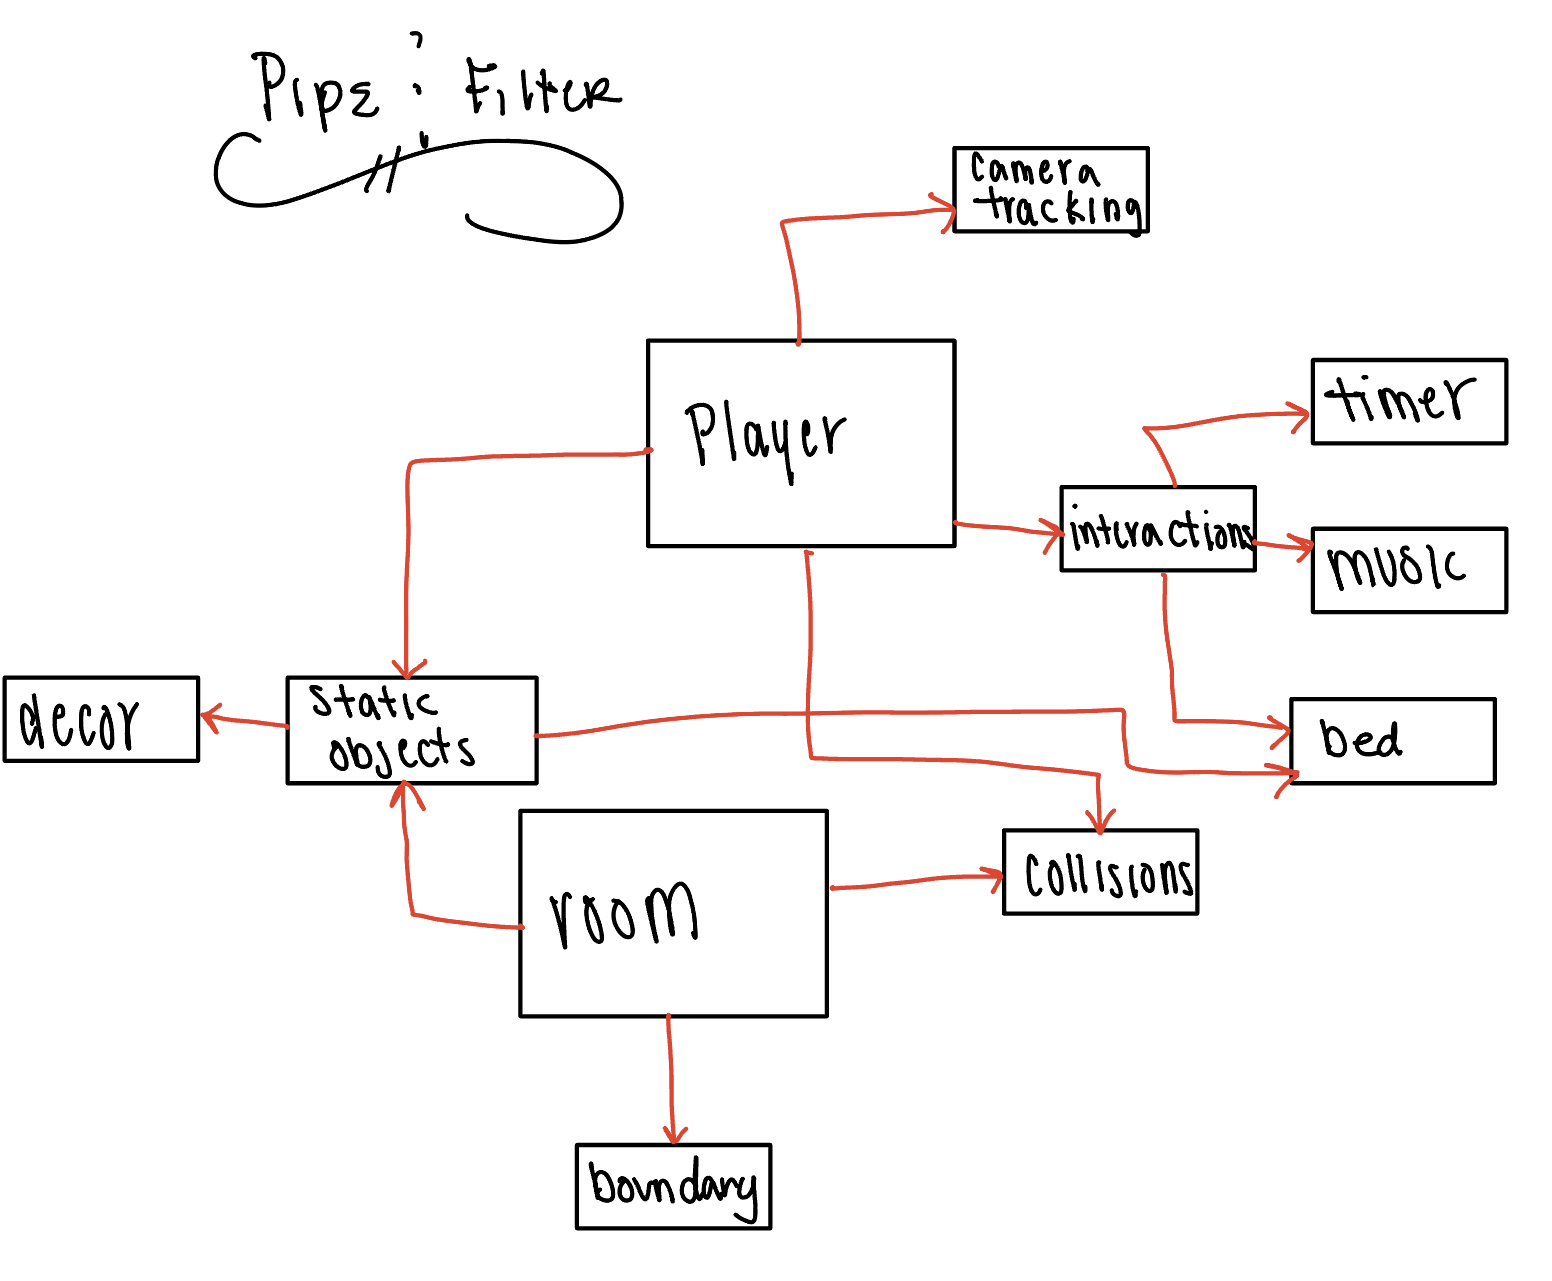 Pipe & Filter
camera
tracking
Player
timer
interactions
music
static
objects
decor
bed
room
collisions
boundary